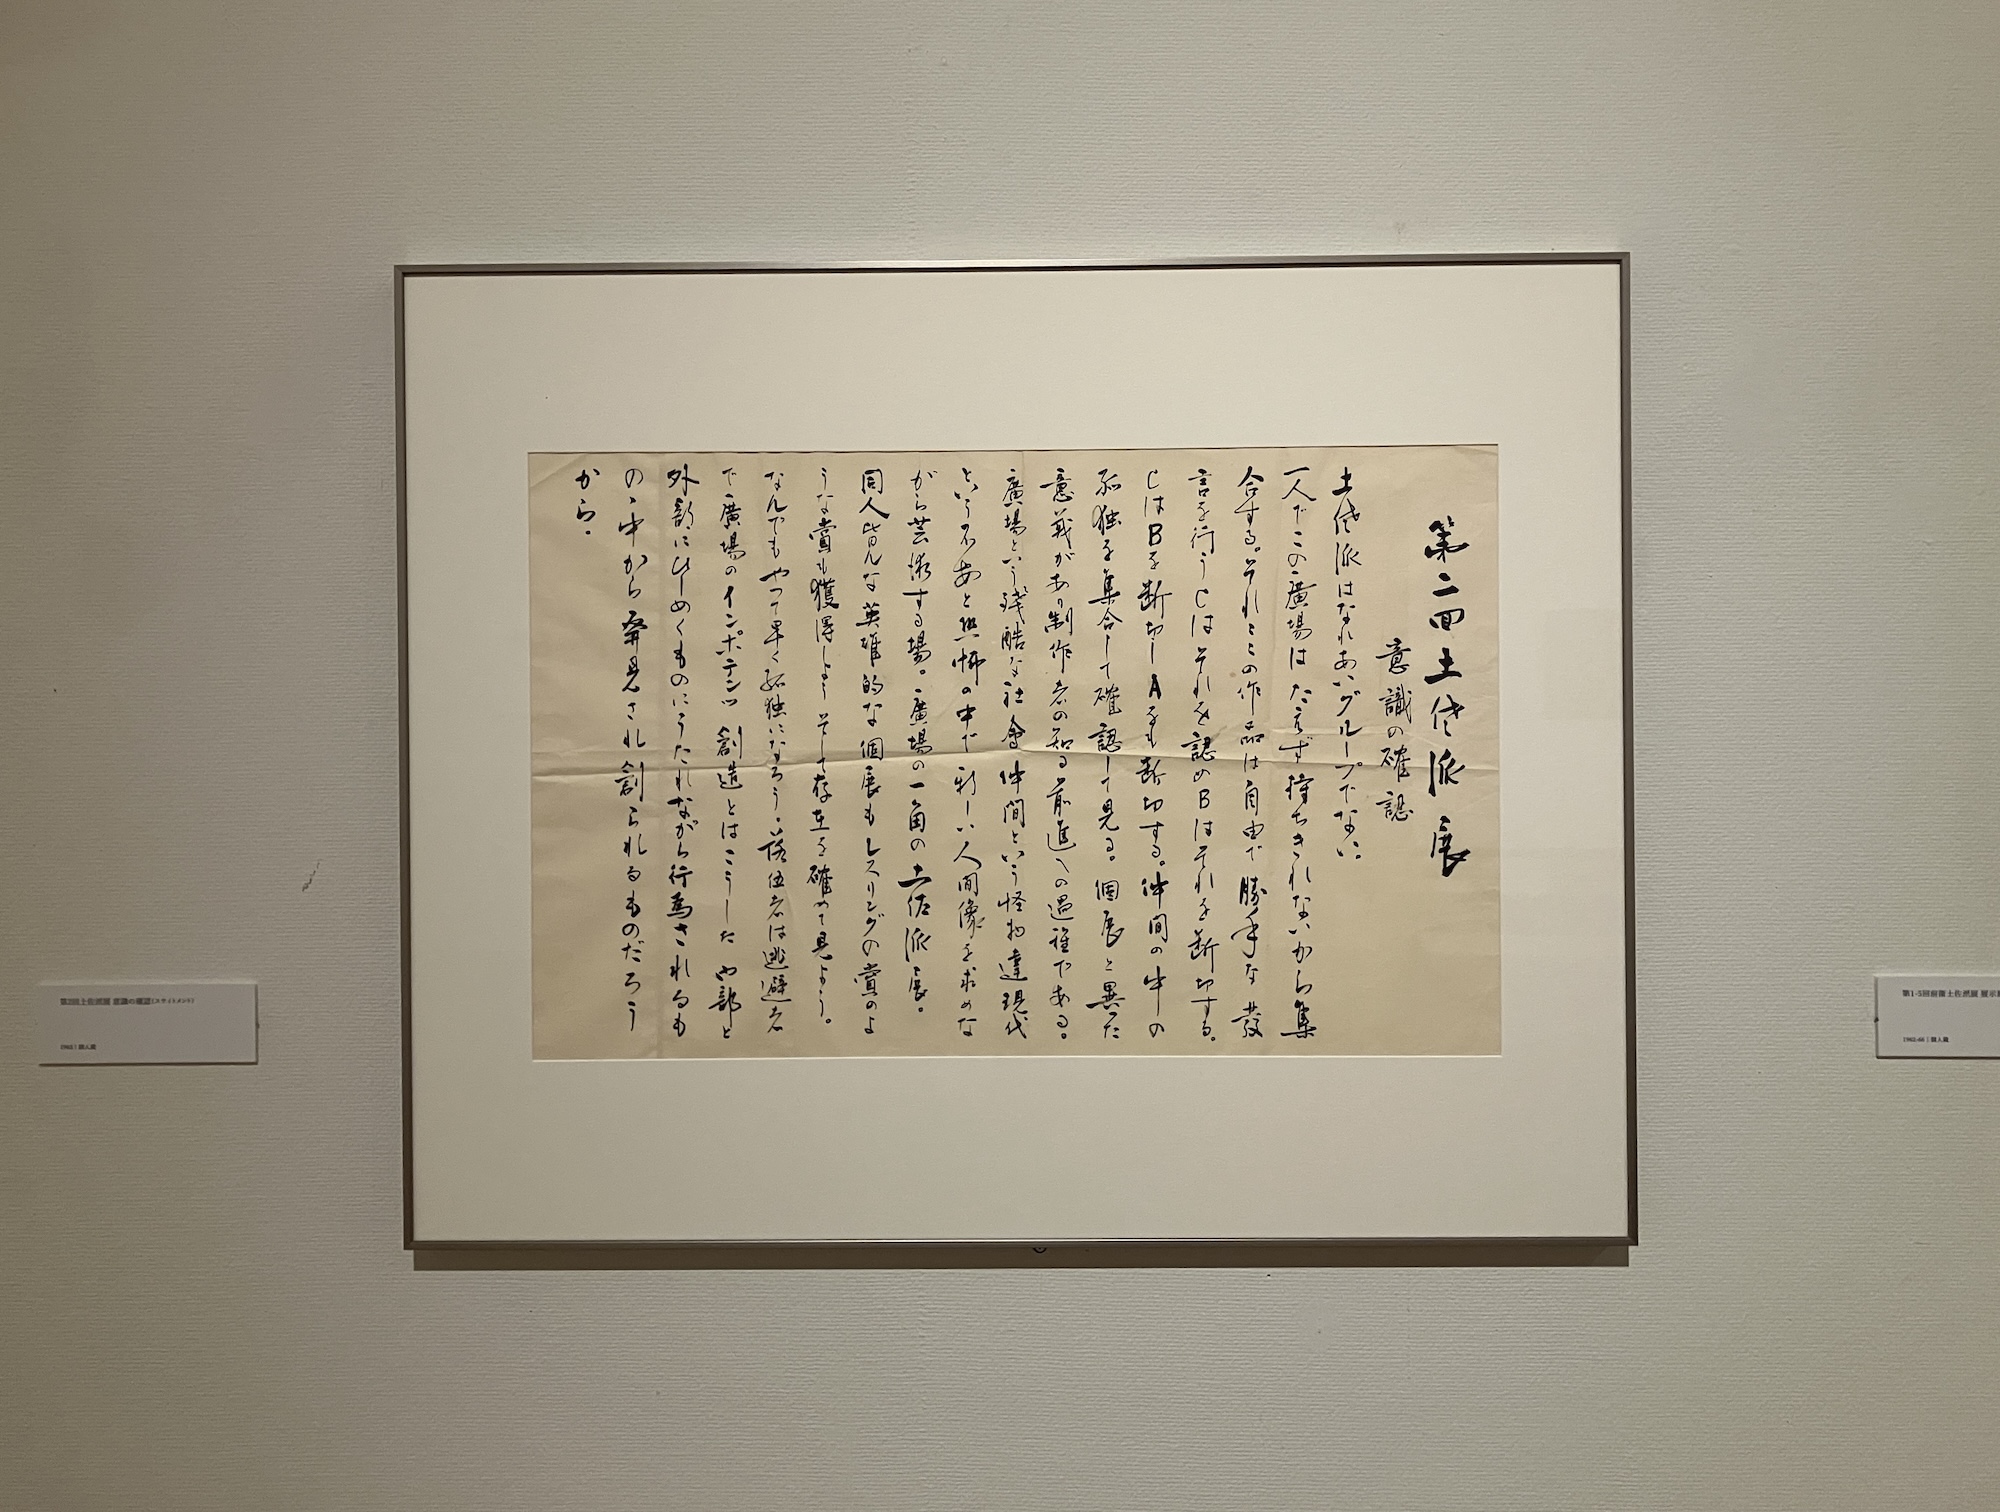 第二回土佐派展
意識の確認
土佐派はなれあいグループでない
一人でこの廣場はたえず持ちきれないから集
合する。それここの作品は自由で勝手な発
言を行うCはそれを認めBはそれを断切する。
CはBを断切しAをも断切する。仲間の中の
孤独を集合して確認して見る。個展と異った
意義があり制作者の知る前進への過程である。
廣場という残酷な社會仲間という怪物達現代
という不安と恐怖の中で新しい人間像を求めな
がら芸術する場。廣場の一角の土佐派展。
同人皆んな英雄的な個展もレスリングの賞のよ
うな賞も獲得しよう そして存在を確めて見よう。
なんでもやって早く孤独になろう。落伍者は逃避者
で廣場のインポテンツ 創造とはこうした内部と
外部にひしめくものにうたれながら行為されるも
の、中から発見され創られるものだろう
から。
第2回土佐派展 意識の確認(ステイトメント)
1963｜個人蔵
第1-5回前衛土佐派展 展示
1962-66｜個人蔵